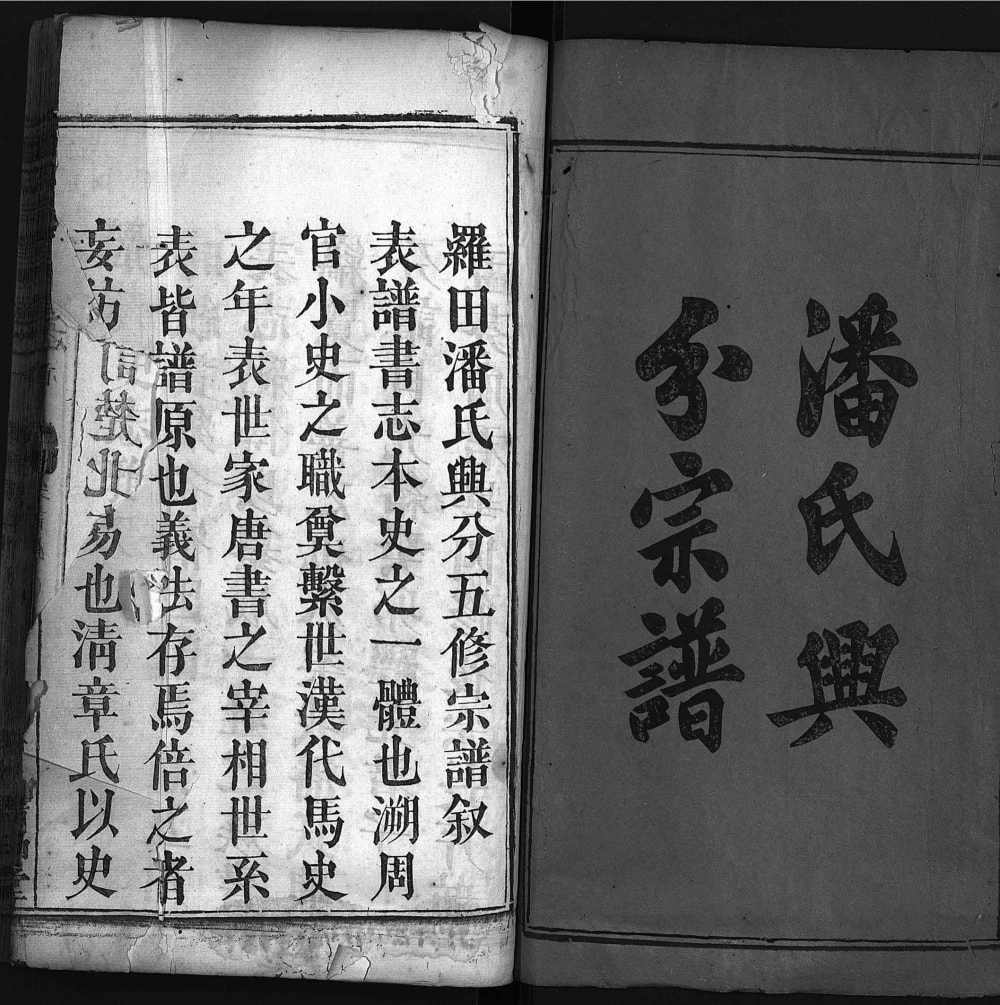 潘氏興
分宗譜
羅田潘氏興分五修宗譜叙
表譜書志本史之一體也溯周
官小史之職奠繫世漢代馬史
之年表世家唐書之宰相世系
表皆譜原也義法存焉倍之者
妄訪訂楚北易也淸章氏以史